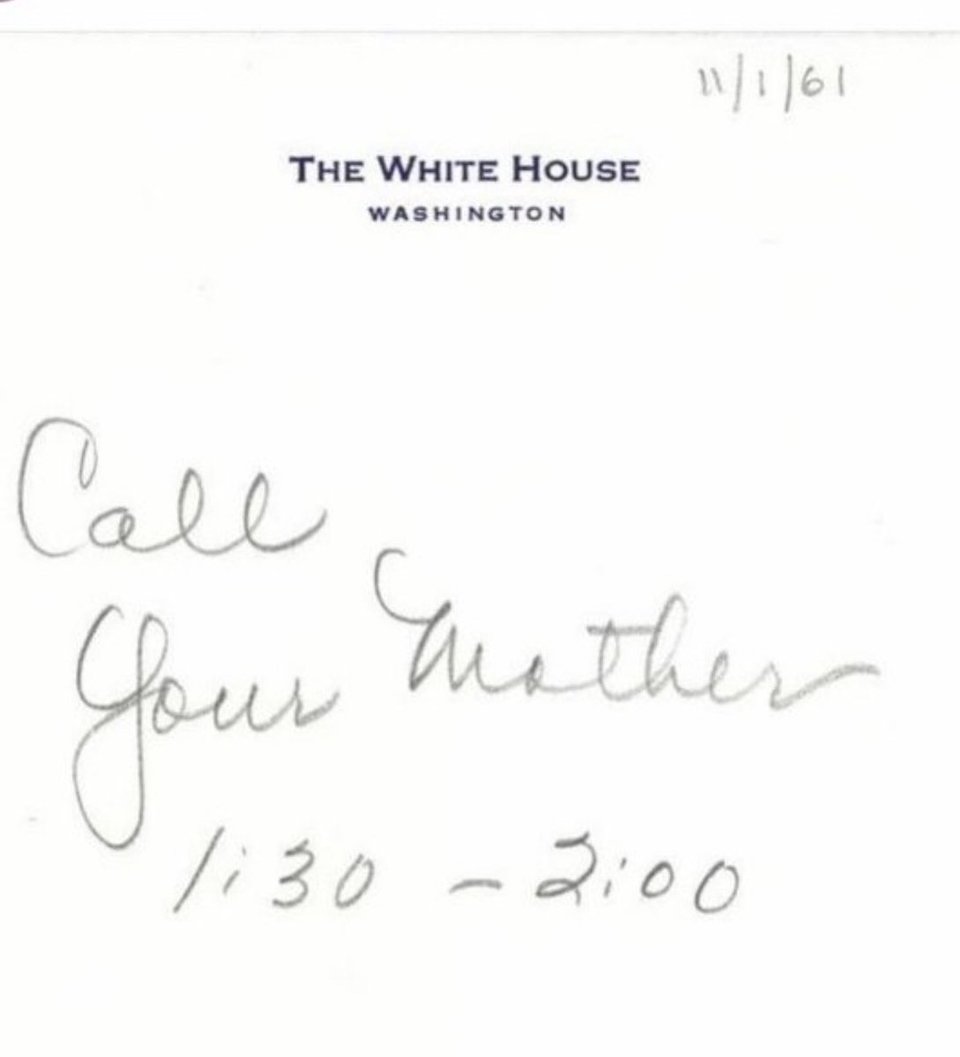 11/1/61
THE WHITE HOUSE
WASHINGTON
Call
Your Mother
1:30 - 2:00